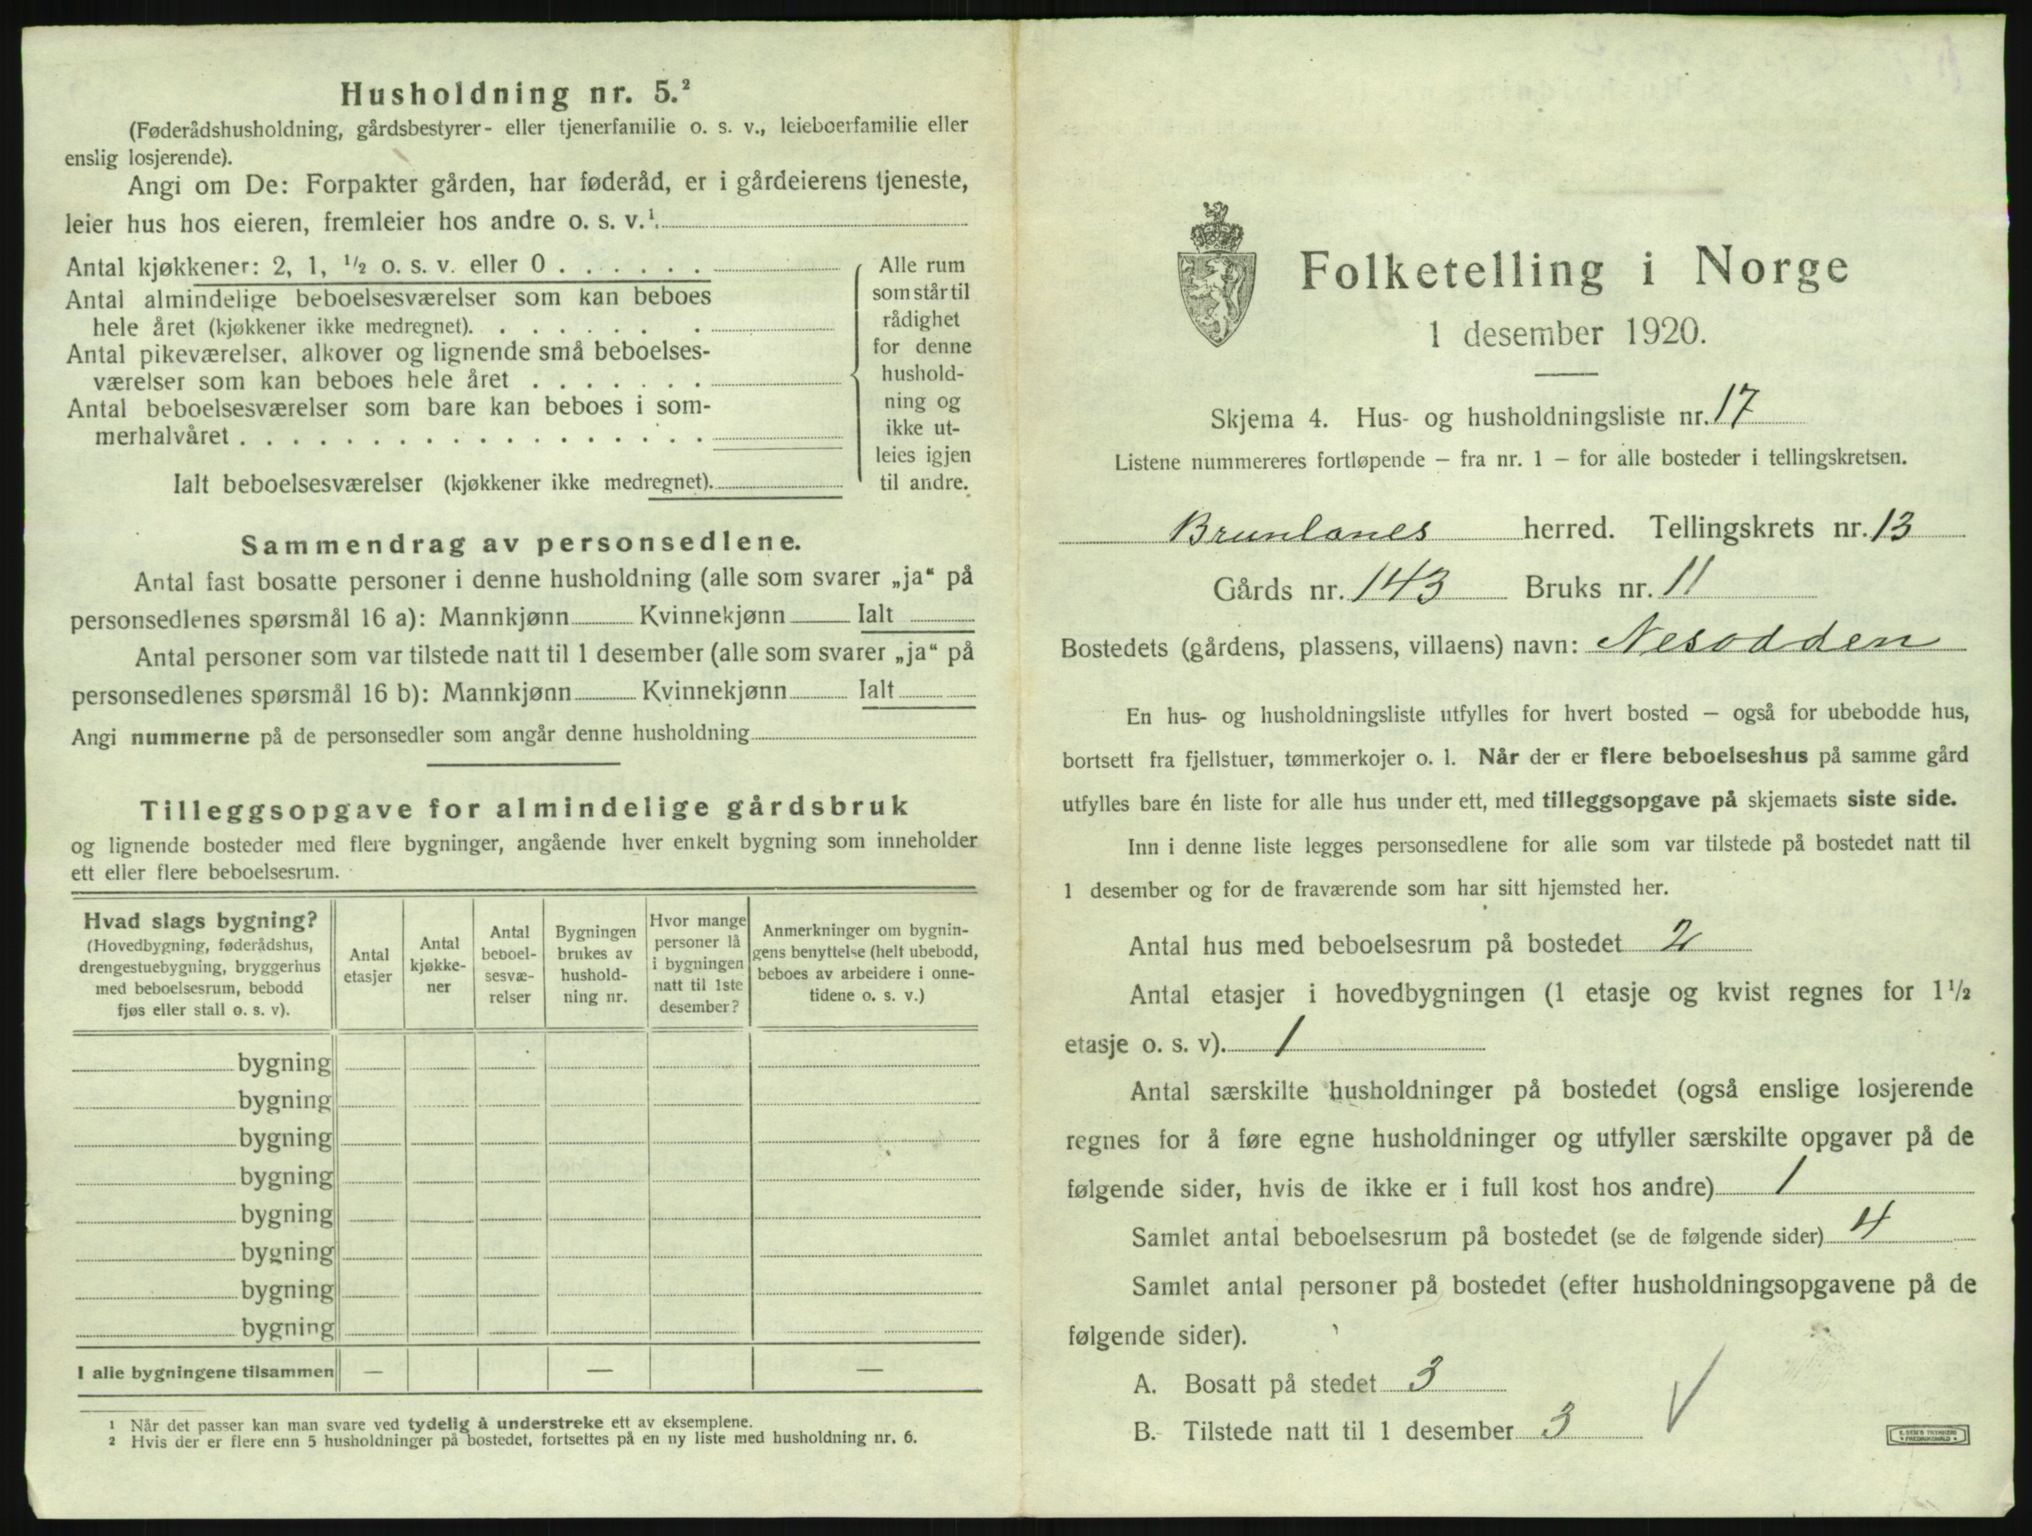 Husholdning nr. 5.²
(Føderådshusholdning, gårdsbestyrer- eller tjenerfamilie o. s. v., leieboerfamilie eller
enslig losjerende).
Angi om De: Forpakter gården, har føderåd, er i gårdeierens tjeneste,
leier hus hos eieren, fremleier hos andre o. s. v.¹
Antal kjøkkener: 2, 1, ½ o. s. v. eller 0 . . . . . .
Antal almindelige beboelsesværelser som kan beboes
hele året (kjøkkener ikke medregnet). . . . . . . .
Antal pikeværelser, alkover og lignende små beboelses-
værelser som kan beboes hele året . . . . . . .
Antal beboelsesværelser som bare kan beboes i som-
merhalvåret . . . . . . . . . . . . . . . . . .
Ialt beboelsesværelser (kjøkkener ikke medregnet).
Alle rum
som står til
rådighet
for denne
hushold-
ning og
ikke ut-
leies igjen
til andre.
Sammendrag av personsedlene.
Antal fast bosatte personer i denne husholdning (alle som svarer „ja“ på
personsedlenes spørsmål 16 a): Mannkjønn Kvinnekjønn Ialt
Antal personer som var tilstede natt til 1 desember (alle som svarer „ja“ på
personsedlenes spørsmål 16 b): Mannkjønn Kvinnekjønn Ialt
Angi nummerne på de personsedler som angår denne husholdning
Tilleggsopgave for almindelige gårdsbruk
og lignende bosteder med flere bygninger, angående hver enkelt bygning som inneholder
ett eller flere beboelsesrum.
Hvad slags bygning?
(Hovedbygning, føderådshus,
drengestuebygning, bryggerhus
med beboelsesrum, bebodd
fjøs eller stall o. s. v).
Antal
etasjer
Antal
kjøkke-
ner
Antal
beboel-
sesvæ-
relser
Bygningen
brukes av
hushold-
ning nr.
Hvor mange
personer lå
i bygningen
natt til 1ste
desember?
Anmerkninger om bygnin-
gens benyttelse (helt ubebodd,
beboes av arbeidere i onne-
tidene o. s. v.)
bygning
bygning
bygning
bygning
bygning
bygning
bygning
bygning
I alle bygningene tilsammen — — —
¹ Når det passer kan man svare ved tydelig å understreke ett av eksemplene.
² Hvis der er flere enn 5 husholdninger på bostedet, fortsettes på en ny liste med husholdning nr. 6.
Folketelling i Norge
1 desember 1920.
Skjema 4. Hus- og husholdningsliste nr. 17
Listene nummereres fortløpende – fra nr. 1 – for alle bosteder i tellingskretsen.
Brunlanes herred. Tellingskrets nr. 13
Gårds nr. 143 Bruks nr. 11
Bostedets (gårdens, plassens, villaens) navn: Nesodden
En hus- og husholdningsliste utfylles for hvert bosted – også for ubebodde hus,
bortsett fra fjellstuer, tømmerkojer o. l. Når der er flere beboelseshus på samme gård
utfylles bare én liste for alle hus under ett, med tilleggsopgave på skjemaets siste side.
Inn i denne liste legges personsedlene for alle som var tilstede på bostedet natt til
1 desember og for de fraværende som har sitt hjemsted her.
Antal hus med beboelsesrum på bostedet 2
Antal etasjer i hovedbygningen (1 etasje og kvist regnes for 1½
etasje o. s. v). 1
Antal særskilte husholdninger på bostedet (også enslige losjerende
regnes for å føre egne husholdninger og utfyller særskilte opgaver på de
følgende sider, hvis de ikke er i full kost hos andre) 1
Samlet antal beboelsesrum på bostedet (se de følgende sider) 4
Samlet antal personer på bostedet (efter husholdningsopgavene på de
følgende sider).
A. Bosatt på stedet 3
B. Tilstede natt til 1 desember 3